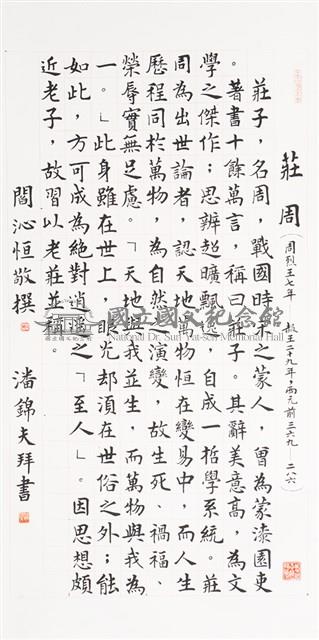 莊周（周烈王七年　赧王二十九年，西元前三六九—二八六）
莊子，名周，戰國時宋之蒙人，曾為蒙漆園吏
。著書十餘萬言，稱曰莊子。其辭美意高，為文
學之傑作；思辨超曠飄逸，自成一哲學系統。莊
周為出世論者，認天地萬物恒在變易中，而人生
歷程同於萬物，為自然之演變，故生死、禍福、
榮辱實無足慮。「天地與我並生，而萬物與我為
一。」此身雖在世上，眼光卻須在世俗之外；能
如此，方可成為絕對逍遙之「至人」。因思想頗
近老子，故習以老莊並稱。
閻沁恒敬撰　潘錦夫拜書
國立國父紀念館
National Dr. Sun Yat-sen Memorial Hall